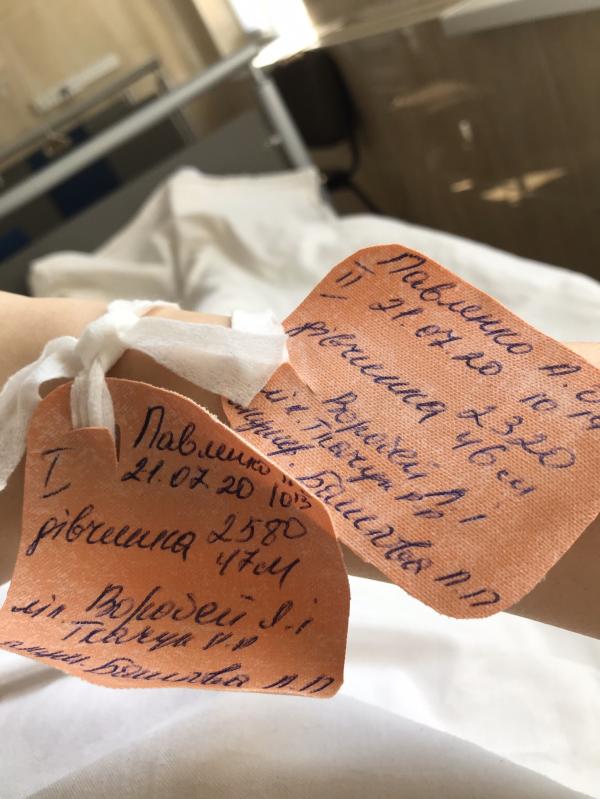 I Павленко
21.07.20 10 13
дівчинка 2580
47 м
лік. Воробей Я. І
Ткачук
Башлова Л. П
II Павленко А.
21.07.20 10 14
дівчинка 2320
46 м
лік. Воробей Я. І
Ткачук
Башлова Л. П